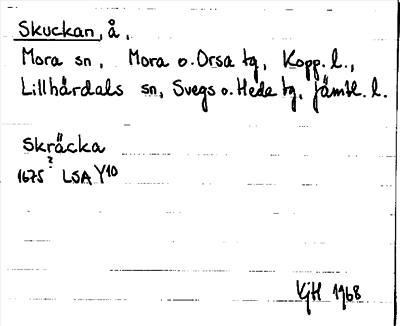 Skuckan, å,
Mora sn, Mora o. Orsa tg, Kopp. l.,
Lillhärdals sn, Svegs o. Hede tg, Jämtl. l.
Skräcka
1675? LSA Y10
KjH 1968